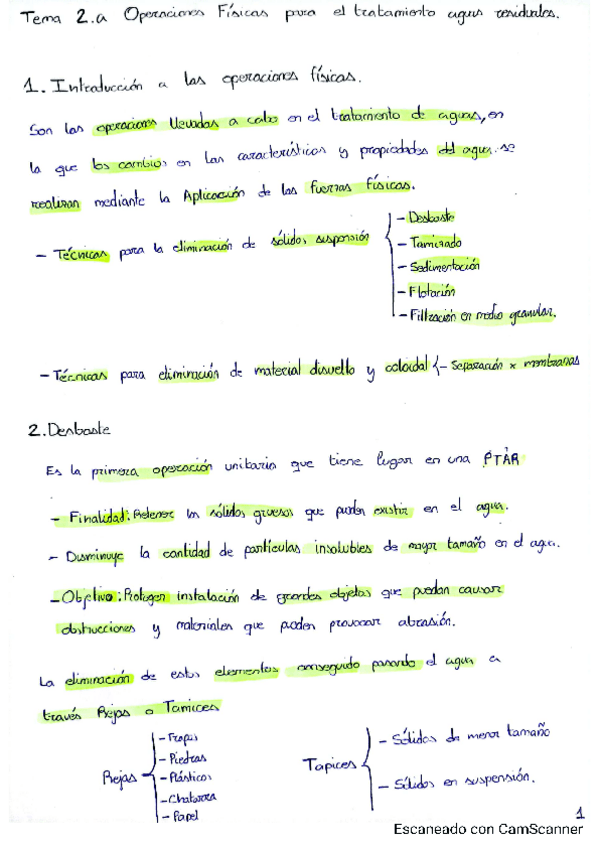 Tema 2.a Operaciones Físicas para el tratamiento aguas residuales.
1. Introducción a las operaciones físicas.
Son las operaciones llevadas a cabo en el tratamiento de aguas, en
la que los cambios en las características y propiedades del agua. se
realizan mediante la Aplicación de las fuerzas físicas.
- Técnicas para la eliminación de sólidos suspensión
- Desbaste
- Tamizado
- Sedimentación
- Flotación
- Filtración en medio granular.
- Técnicas para eliminación de material disuelto y coloidal {- Separación x membranas
2. Desbaste
Es la primera operación unitaria que tiene lugar en una PTAR
- Finalidad: Retener los sólidos gruesos que pueden existir en el agua.
- Disminuye la cantidad de partículas insolubles de mayor tamaño en el agua.
- Objetivo: Protegen instalación de grandes objetos que puedan causar
obstrucciones y materiales que pueden provocar abrasión.
La eliminación de estos elementos conseguido pasando el agua a
través Rejas o Tamices
Rejas
- Trapos
- Piedras
- Plásticos
- Chatarra
- Papel
Tapices
- Sólidos de menor tamaño
- Sólidos en suspensión.
1
Escaneado con CamScanner